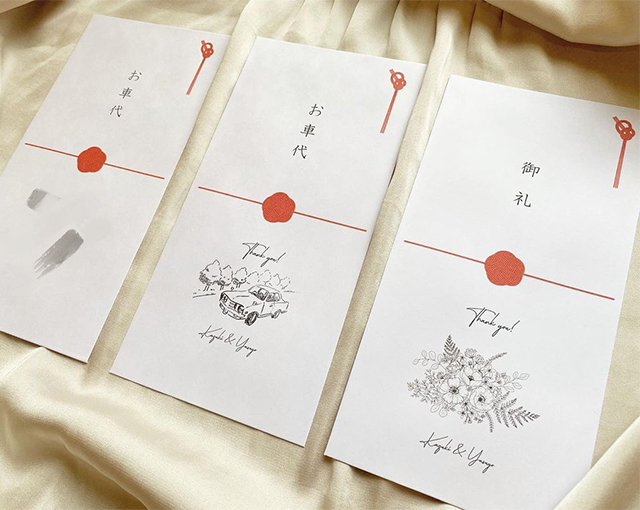 お車代
お車代
Thank you!
Kazuki & Yasuyo
御礼
Thank you!
Kazuki & Yasuyo